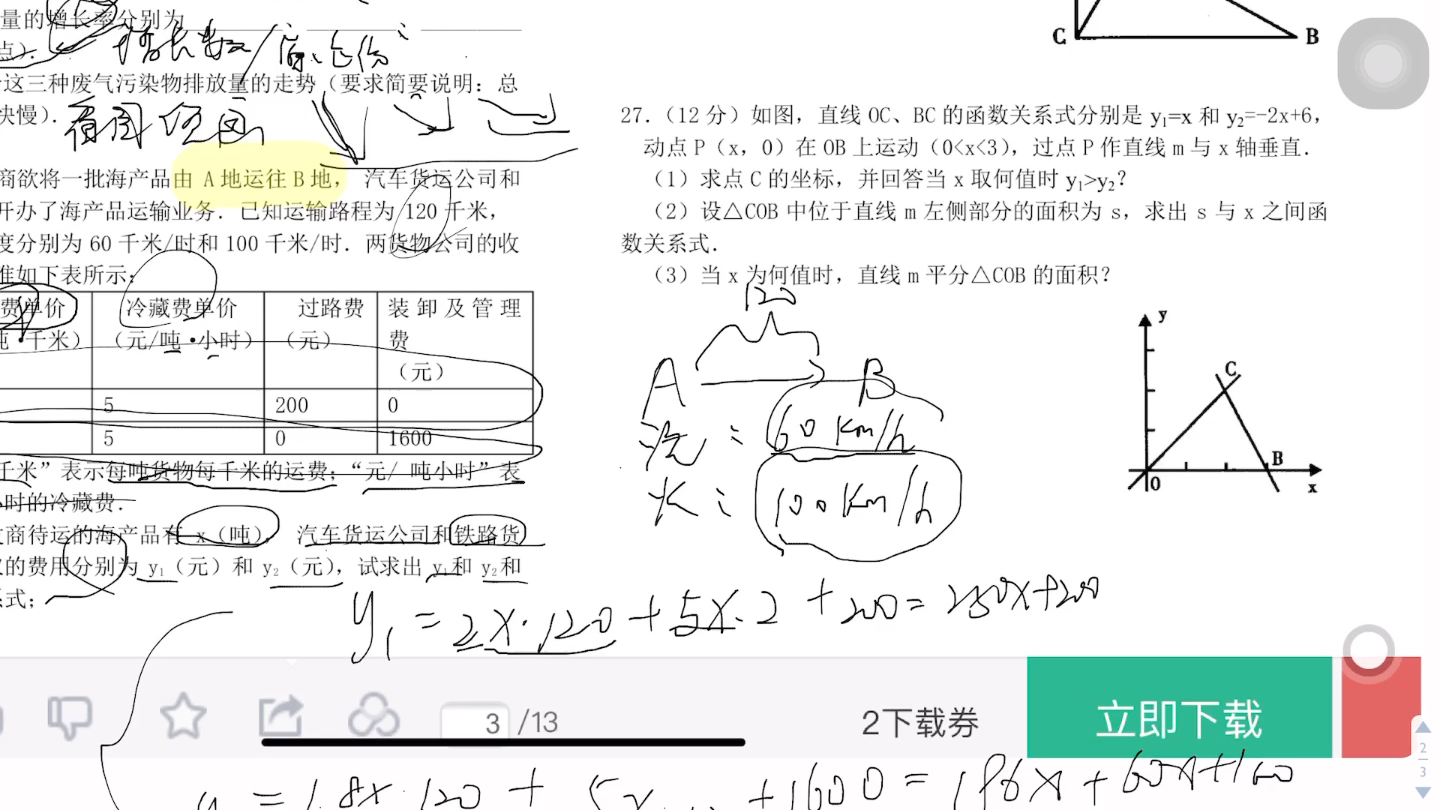 量的增长率分别为
点).
增长数/
这三种废气污染物排放量的走势(要求简要说明:总
快慢).
看图
商欲将一批海产品由 A 地运往 B 地, 汽车货运公司和
开办了海产品运输业务. 已知运输路程为 120 千米,
度分别为 60 千米/时和 100 千米/时. 两货物公司的收
准如下表所示:
费单价 冷藏费单价 过路费 装卸及管理
吨·千米) (元/吨·小时) (元) 费
(元)
5 200 0
5 0 1600
千米”表示每吨货物每千米的运费; “元/ 吨小时”表
小时的冷藏费.
商待运的海产品有 x (吨), 汽车货运公司和铁路货
的费用分别为 y₁ (元) 和 y₂ (元), 试求出 y₁和 y₂和
系式;
C B
27. (12 分) 如图, 直线 OC、BC 的函数关系式分别是 y₁=x 和 y₂=-2x+6,
动点 P (x, 0) 在 OB 上运动 (0<x<3), 过点 P 作直线 m 与 x 轴垂直.
(1) 求点 C 的坐标, 并回答当 x 取何值时 y₁>y₂?
(2) 设△COB 中位于直线 m 左侧部分的面积为 s, 求出 s 与 x 之间函
数关系式.
(3) 当 x 为何值时, 直线 m 平分△COB 的面积?
120
A B
汽: 60 km/h
火: 100 km/h
y
C
B
O x
y₁ = 2x·120 + 5x·2 + 200 = 250x+200
3 /13 2下载券 立即下载
2
3
= 1.8x·120 + 5x +1600 =